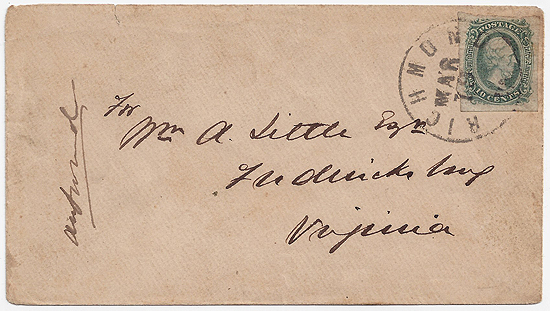 POSTAGE
10 CENTS
RICHMOND
MAR
For
Wm A. Little Esqr
Fredericksburg
Virginia
answered